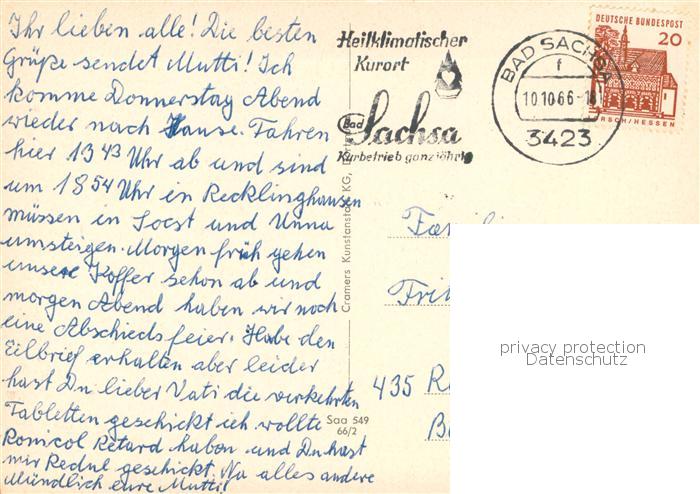 Ihr lieben alle! Die besten
Grüße sendet Mutti! Ich
komme Donnerstag Abend
wieder nach Hause. Fahren
hier 13 43 Uhr ab und sind
um 18 54 Uhr in Recklinghausen
müssen in Soest und Unna
umsteigen. Morgen früh gehen
unsere Koffer schon ab und
morgen Abend haben wir noch
eine Abschiedsfeier. Habe den
Eilbrief erhalten aber leider
hast Du lieber Vati die verkehrten
Tabletten geschickt ich wollte
Ronicol Retard haben und Du hast
mir Redul geschickt. Na alles andere
Mündlich eure Mutti!
Heilklimatischer
Kurort
Bad Sachsa
Kurbetrieb ganzjährig
BAD SACHSA
f
10.10.66-18
3423
DEUTSCHE BUNDESPOST
20
RSCH/HESSEN
Cramers Kunstanstalt KG,
Saa 549
66/2
Famili
Frit
435 R
privacy protection
Datenschutz